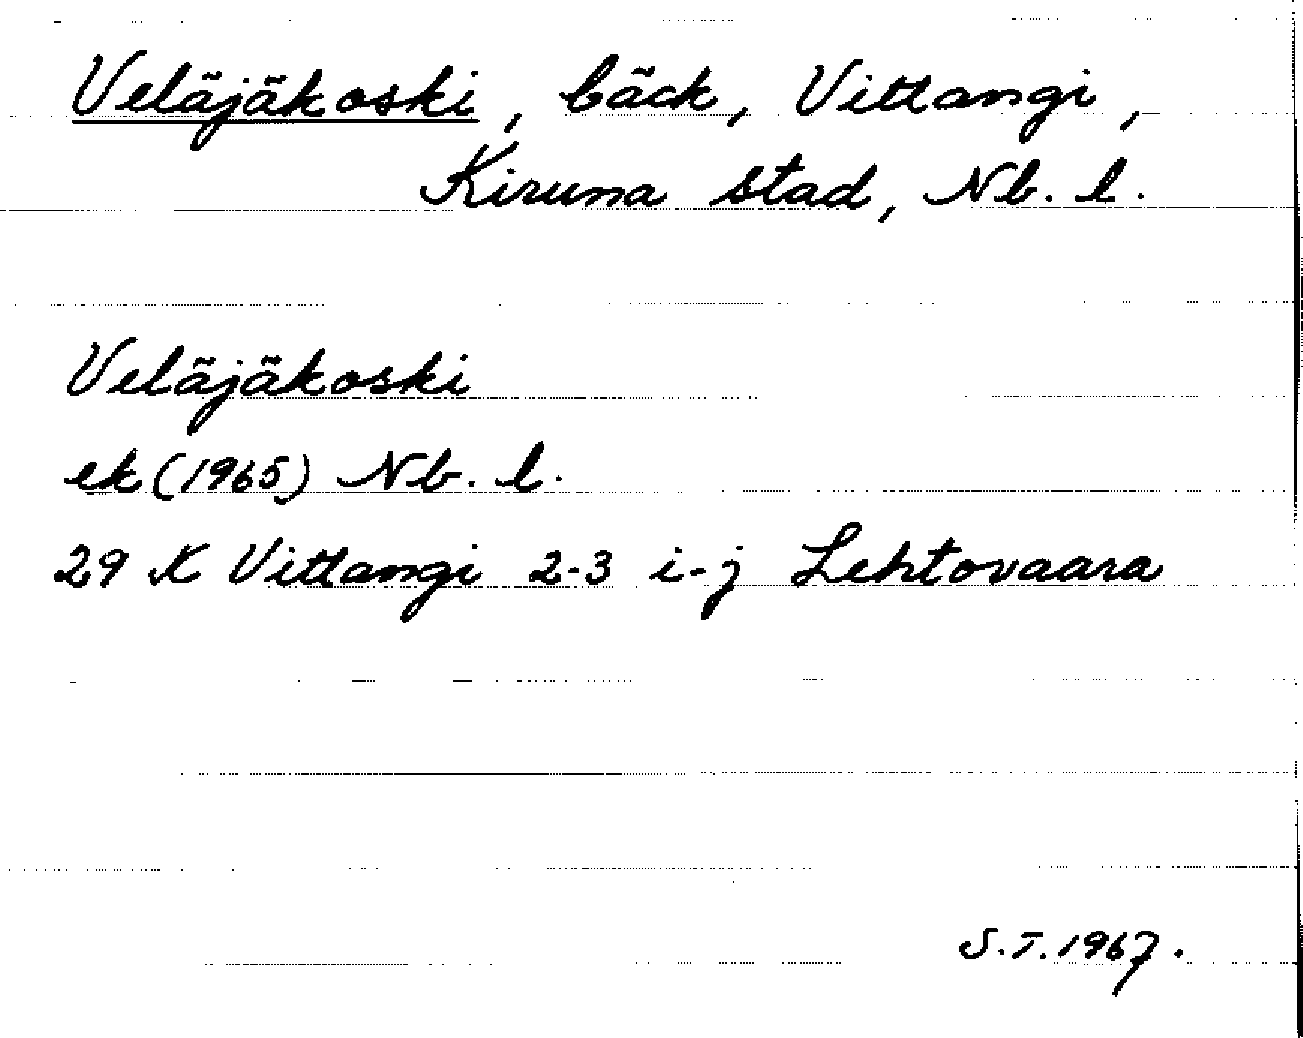 Veläjäkoski, bäck, Vittangi,
Kiruna stad, Nb. l.
Veläjäkoski
ek (1965) Nb. l.
29 K Vittangi 2-3 i-j Lehtovaara
S.T. 1967.